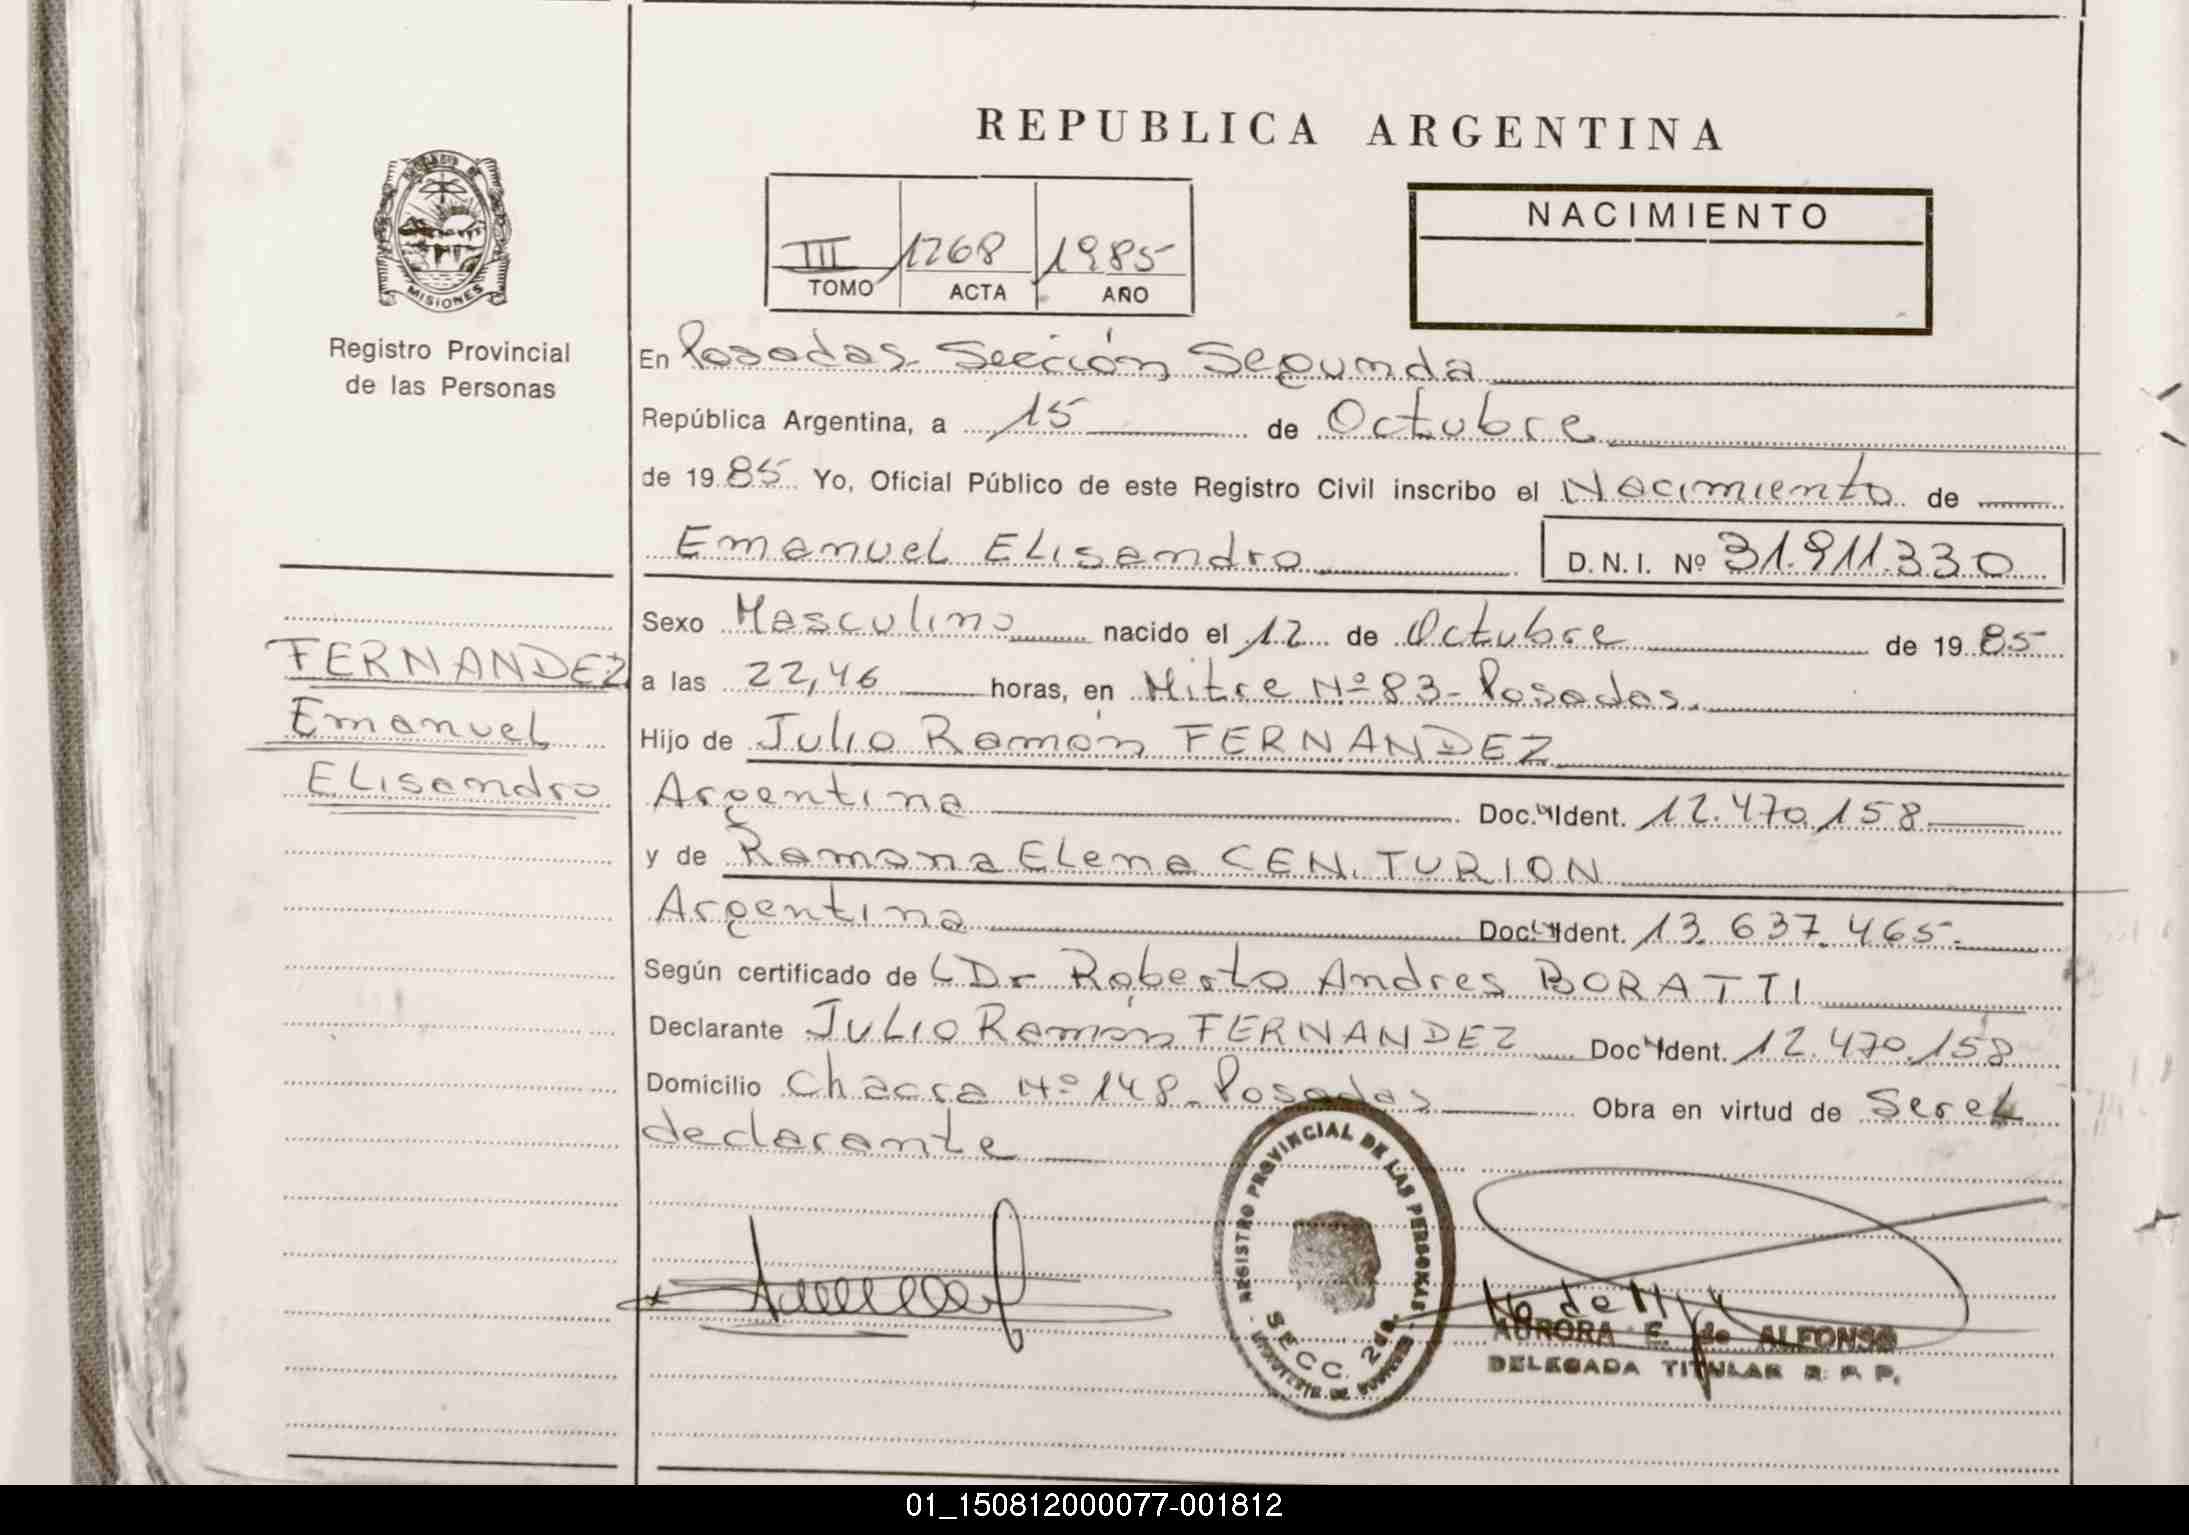 REPUBLICA ARGENTINA
MISIONES
Registro Provincial
de las Personas
III 1268 1985
TOMO ACTA AÑO
NACIMIENTO
En Posadas Sección Segunda
República Argentina, a 15 de Octubre
de 1985 Yo, Oficial Público de este Registro Civil inscribo el Nacimiento de
Emanuel Elisandro D.N.I. Nº 31.911.330
Sexo Masculino nacido el 12 de Octubre de 1985
FERNANDEZ
Emanuel
Elisandro
a las 22,46 horas, en Mitre Nº 83-Posadas.
Hijo de Julio Ramón FERNANDEZ
Argentina Doc. Ident. 12.470.158
y de Ramona Elena CENTURION
Argentina Doc. Ident. 13.637.465
Según certificado de Dr Roberto Andres BORATTI
Declarante Julio Ramón FERNANDEZ Doc Ident. 12.470.158
Domicilio Chacra Nº 148-Posadas Obra en virtud de Ser el
declarante
REGISTRO PROVINCIAL DE LAS PERSONAS
SECC. 2da.
AURORA E. de ALFONSO
DELEGADA TITULAR R. P. P.
01_150812000077-001812